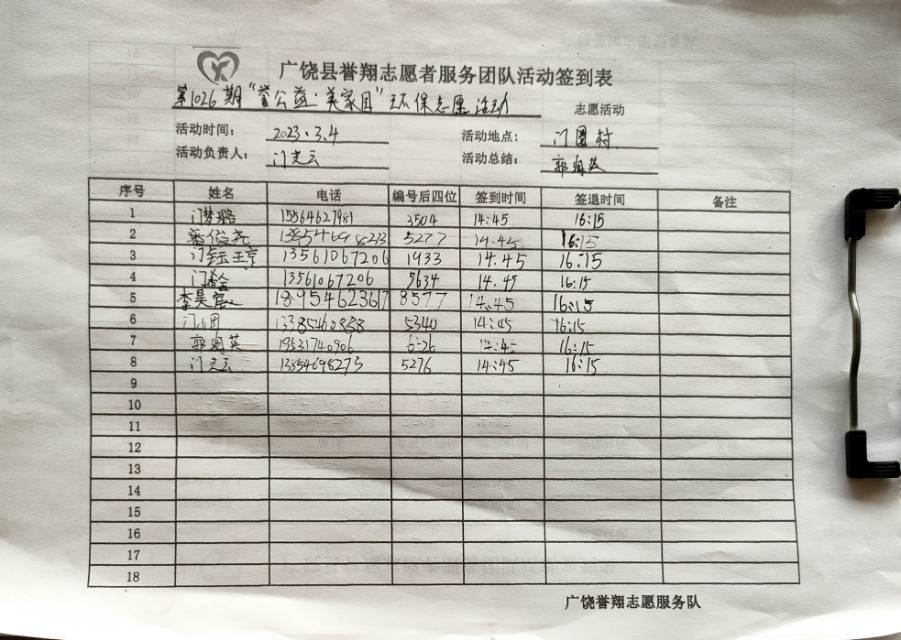 广饶县誉翔志愿者服务团队活动签到表
第1026期“誉公益·美家园”环保志愿活动 志愿活动
活动时间: 2023.3.4 活动地点: 门圈村
活动负责人: 门光云 活动总结: 郭娟英
序号 姓名 电话 编号后四位 签到时间 签退时间 备注
1 门梦璐 15564627981 3504 14:45 16:15
2 5277 14:45 16:15
3 13561067206 1933 14.45 16:15
4 13561067206 9634 14.45 16:15
5 李昊宸 18954623617 8577 14.45 16:15
6 13385460858 5340 14:45 16:15
7 郭娟英 14:45 16:15
8 门光云 13854698273 5276 14:45 16:15
9
10
11
12
13
14
15
16
17
18
广饶誉翔志愿服务队